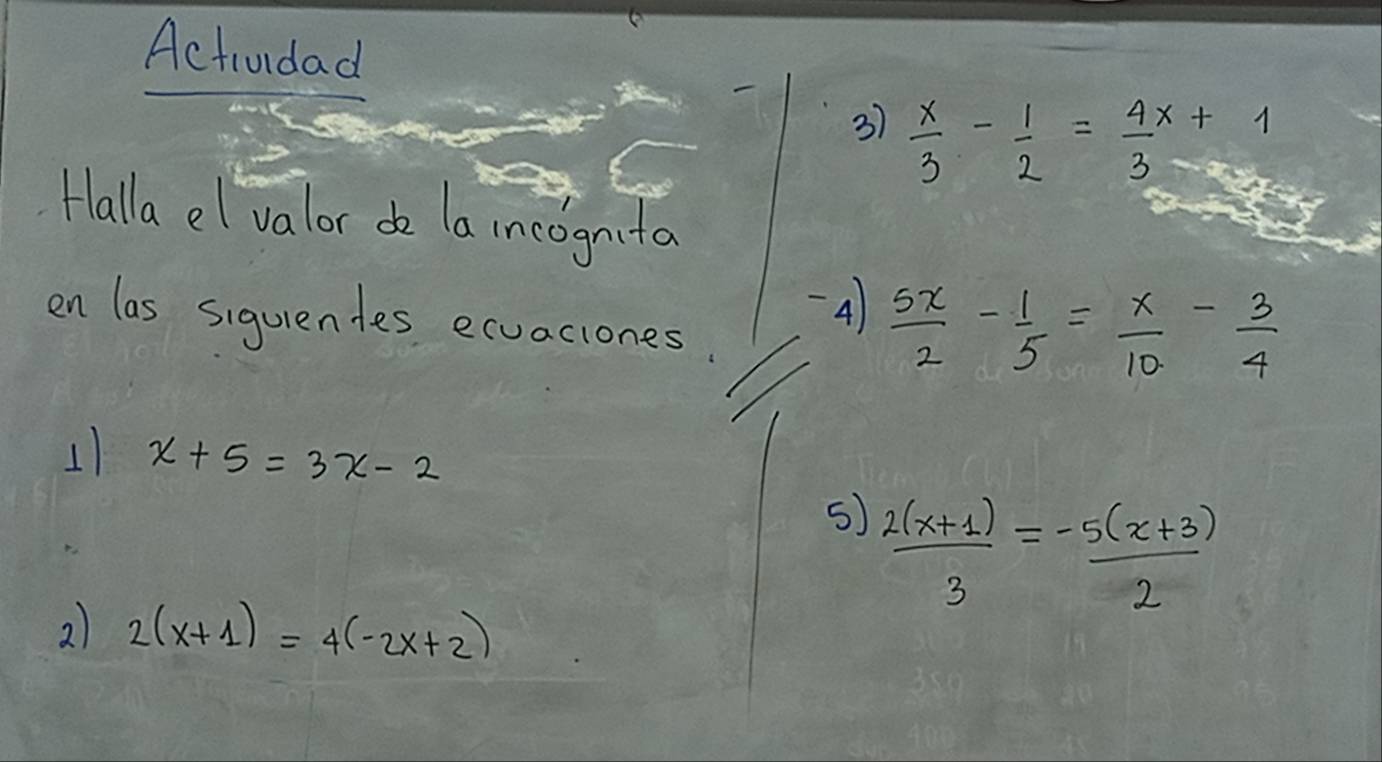 Actividad
Halla el valor de la incógnita
en las siguientes ecuaciones.
1) x + 5 = 3x - 2
2) 2(x+1) = 4(-2x+2)
3) x/3 - 1/2 = 4x/3 + 1
4) 5x/2 - 1/5 = x/10 - 3/4
5) 2(x+1)/3 = -5(x+3)/2